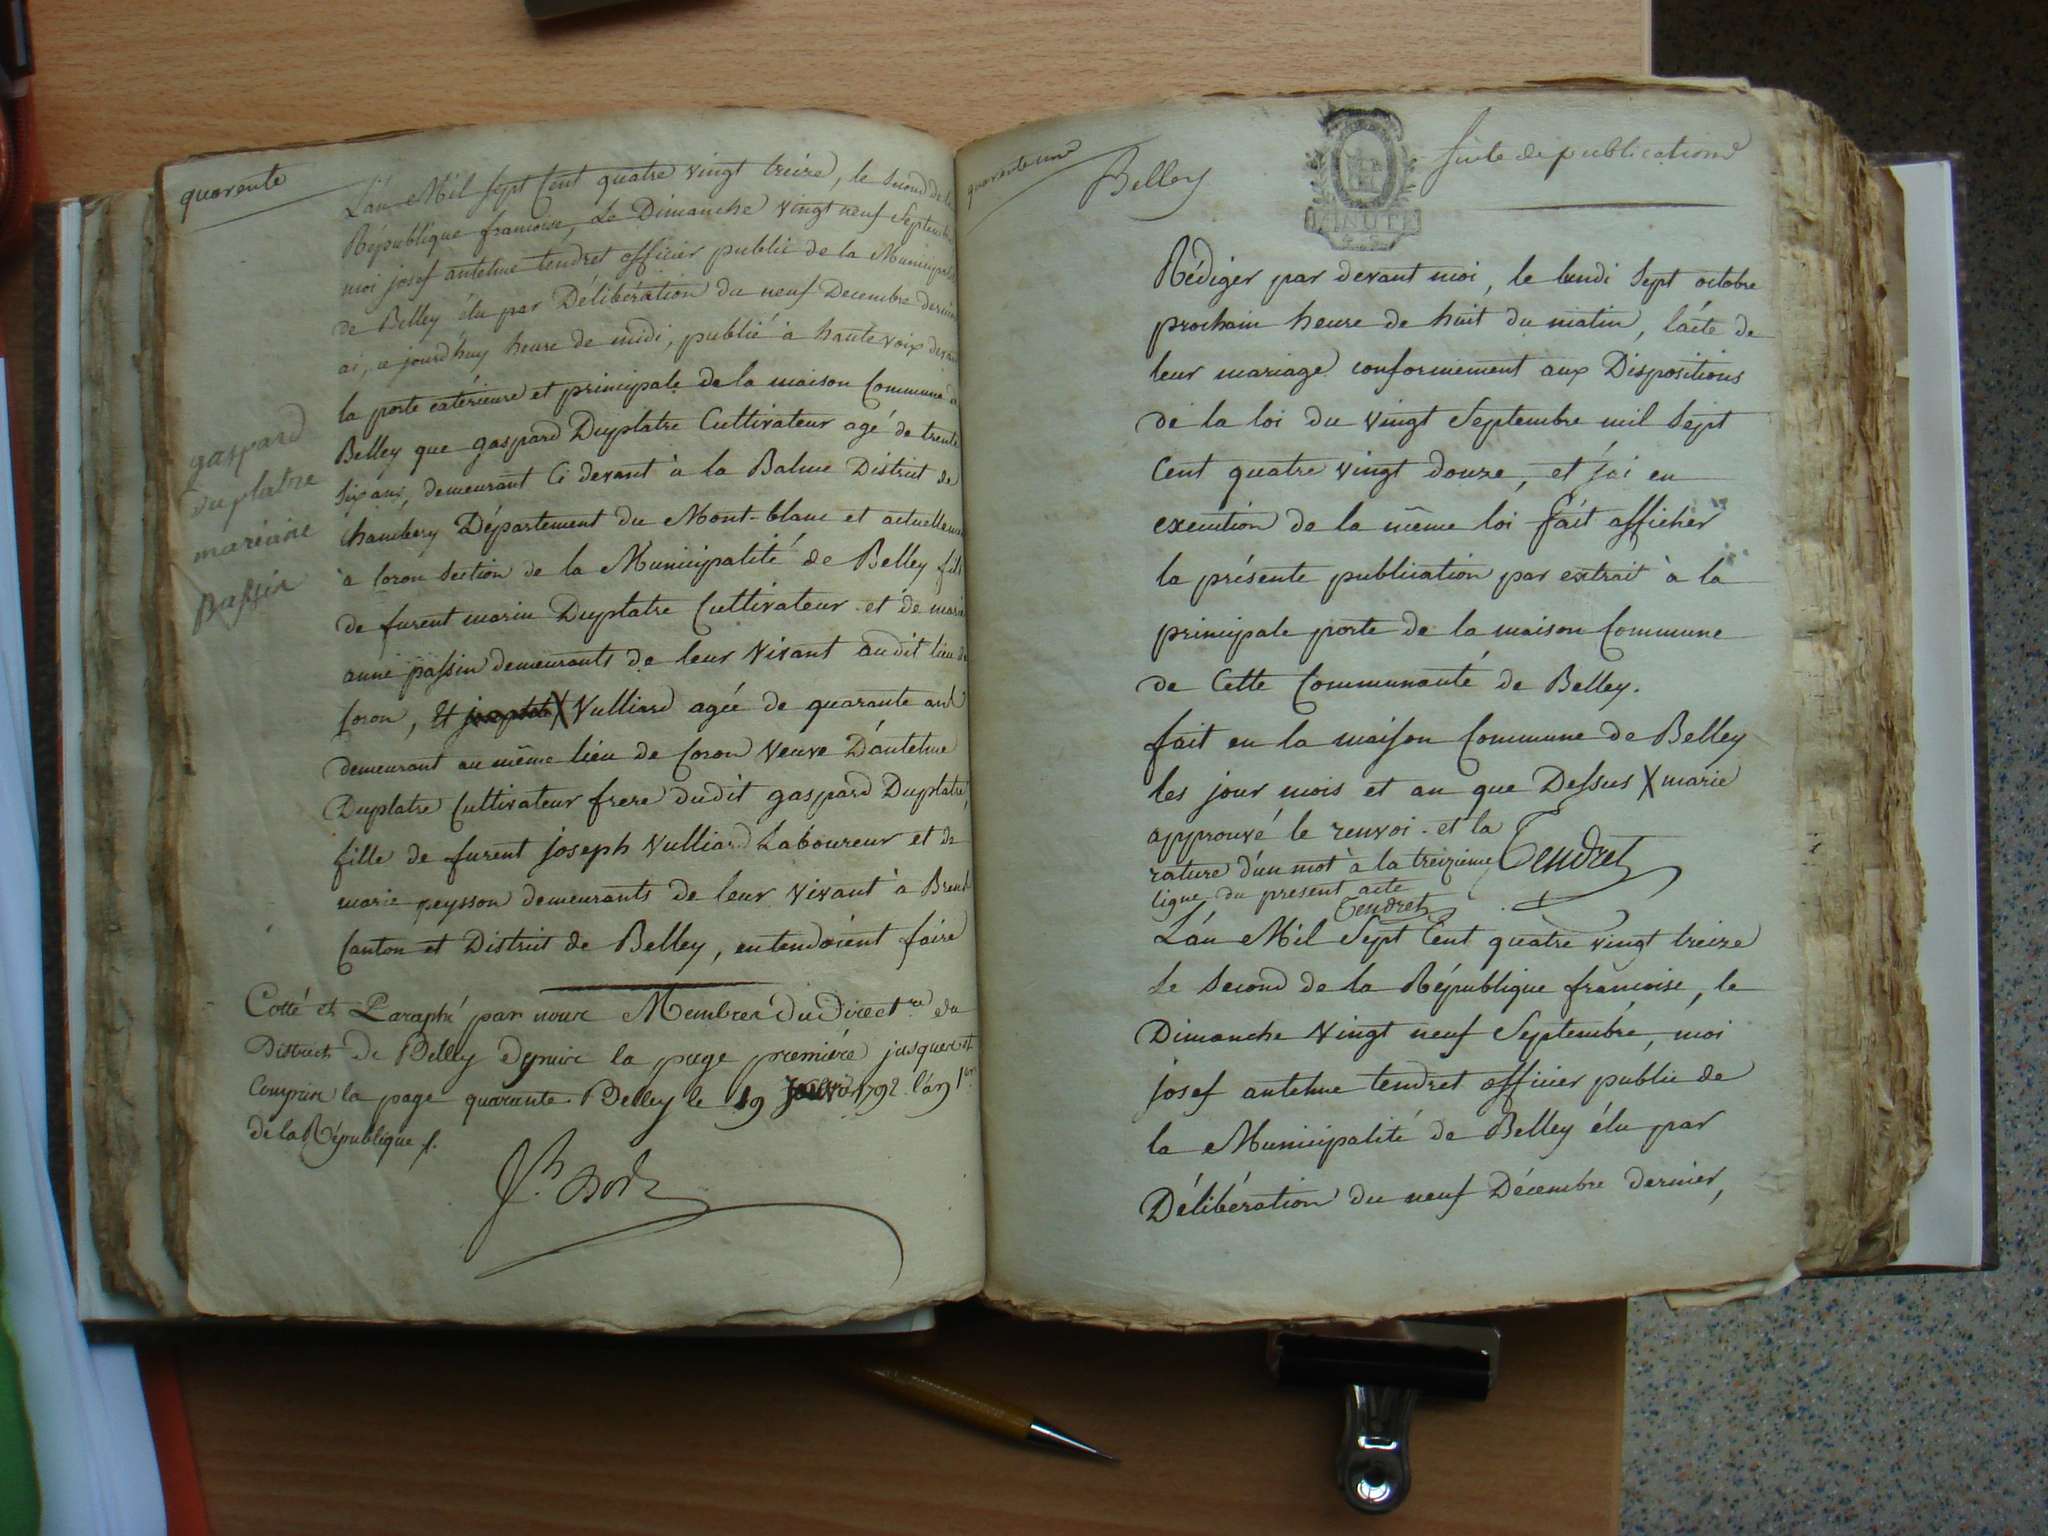 quarente
L'an Mil Sept Cent quatre vingt treize, le Second de la
République francoise, Le Dimanche vingt neuf Septembre
moi josef antelme tendret officier public de la Municipalité
de Belley élu par Délibération du neuf Decembre dernier
ai, ce jourd'huy heure de midi, publié à haute voix devant
la porte extérieure et principale de la maison Commune de
Belley que gaspard Duplatre Cultivateur agé de trente
six ans, demeurant Ci devant à la Balme District de
Chambery Département du Mont-blanc et actuellement
à Coron Section de la Municipalité de Belley fils
de furent marin Duplatre Cultivateur et de marie
anne passin demeurants de leur vivant audit lieu de
Coron, Et X Vulliard agée de quarante ans
demeurant au même lieu de Coron Veuve D'antelme
Duplatre Cultivateur frere dudit gaspard Duplatre,
fille de furent joseph Vulliard Laboureur et de
marie peysson demeurants de leur vivant à Brens
Canton et District de Belley, entendoient faire
gaspard
duplatre
mariane
passin
Cotté et Paraphé par nous Membres du Direct.re du
District de Belley depuis la page première jusques et
Compris la page quarante. Belley le 19 1792 l'an 1er
de la République f.
quarante une
Belley
MINUTE
suite de publications
Rédiger par devant moi, le lundi sept octobre
prochain heure de huit du matin, l'acte de
leur mariage conformement aux Dispositions
de la loi du vingt Septembre mil Sept
Cent quatre vingt douze, et j'ai en
execution de la même loi fait afficher
la présente publication par extrait à la
principale porte de la maison Commune
de Cette Communauté de Belley.
fait en la maison Commune de Belley
les jour mois et an que Dessus X marie
approuvé le renvoi et la
rature d'un mot à la treizieme
ligne du present acte
Tendret
Tendret
L'an Mil Sept Cent quatre vingt treize
Le Second de la République francoise, le
Dimanche Vingt neuf Septembre, moi
josef antelme tendret officier public de
la Municipalité de Belley élu par
Délibération du neuf Décembre dernier,